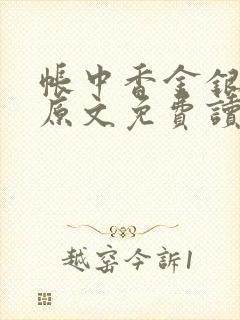 帳中香金銀
原文免費讀
越窑今訴1